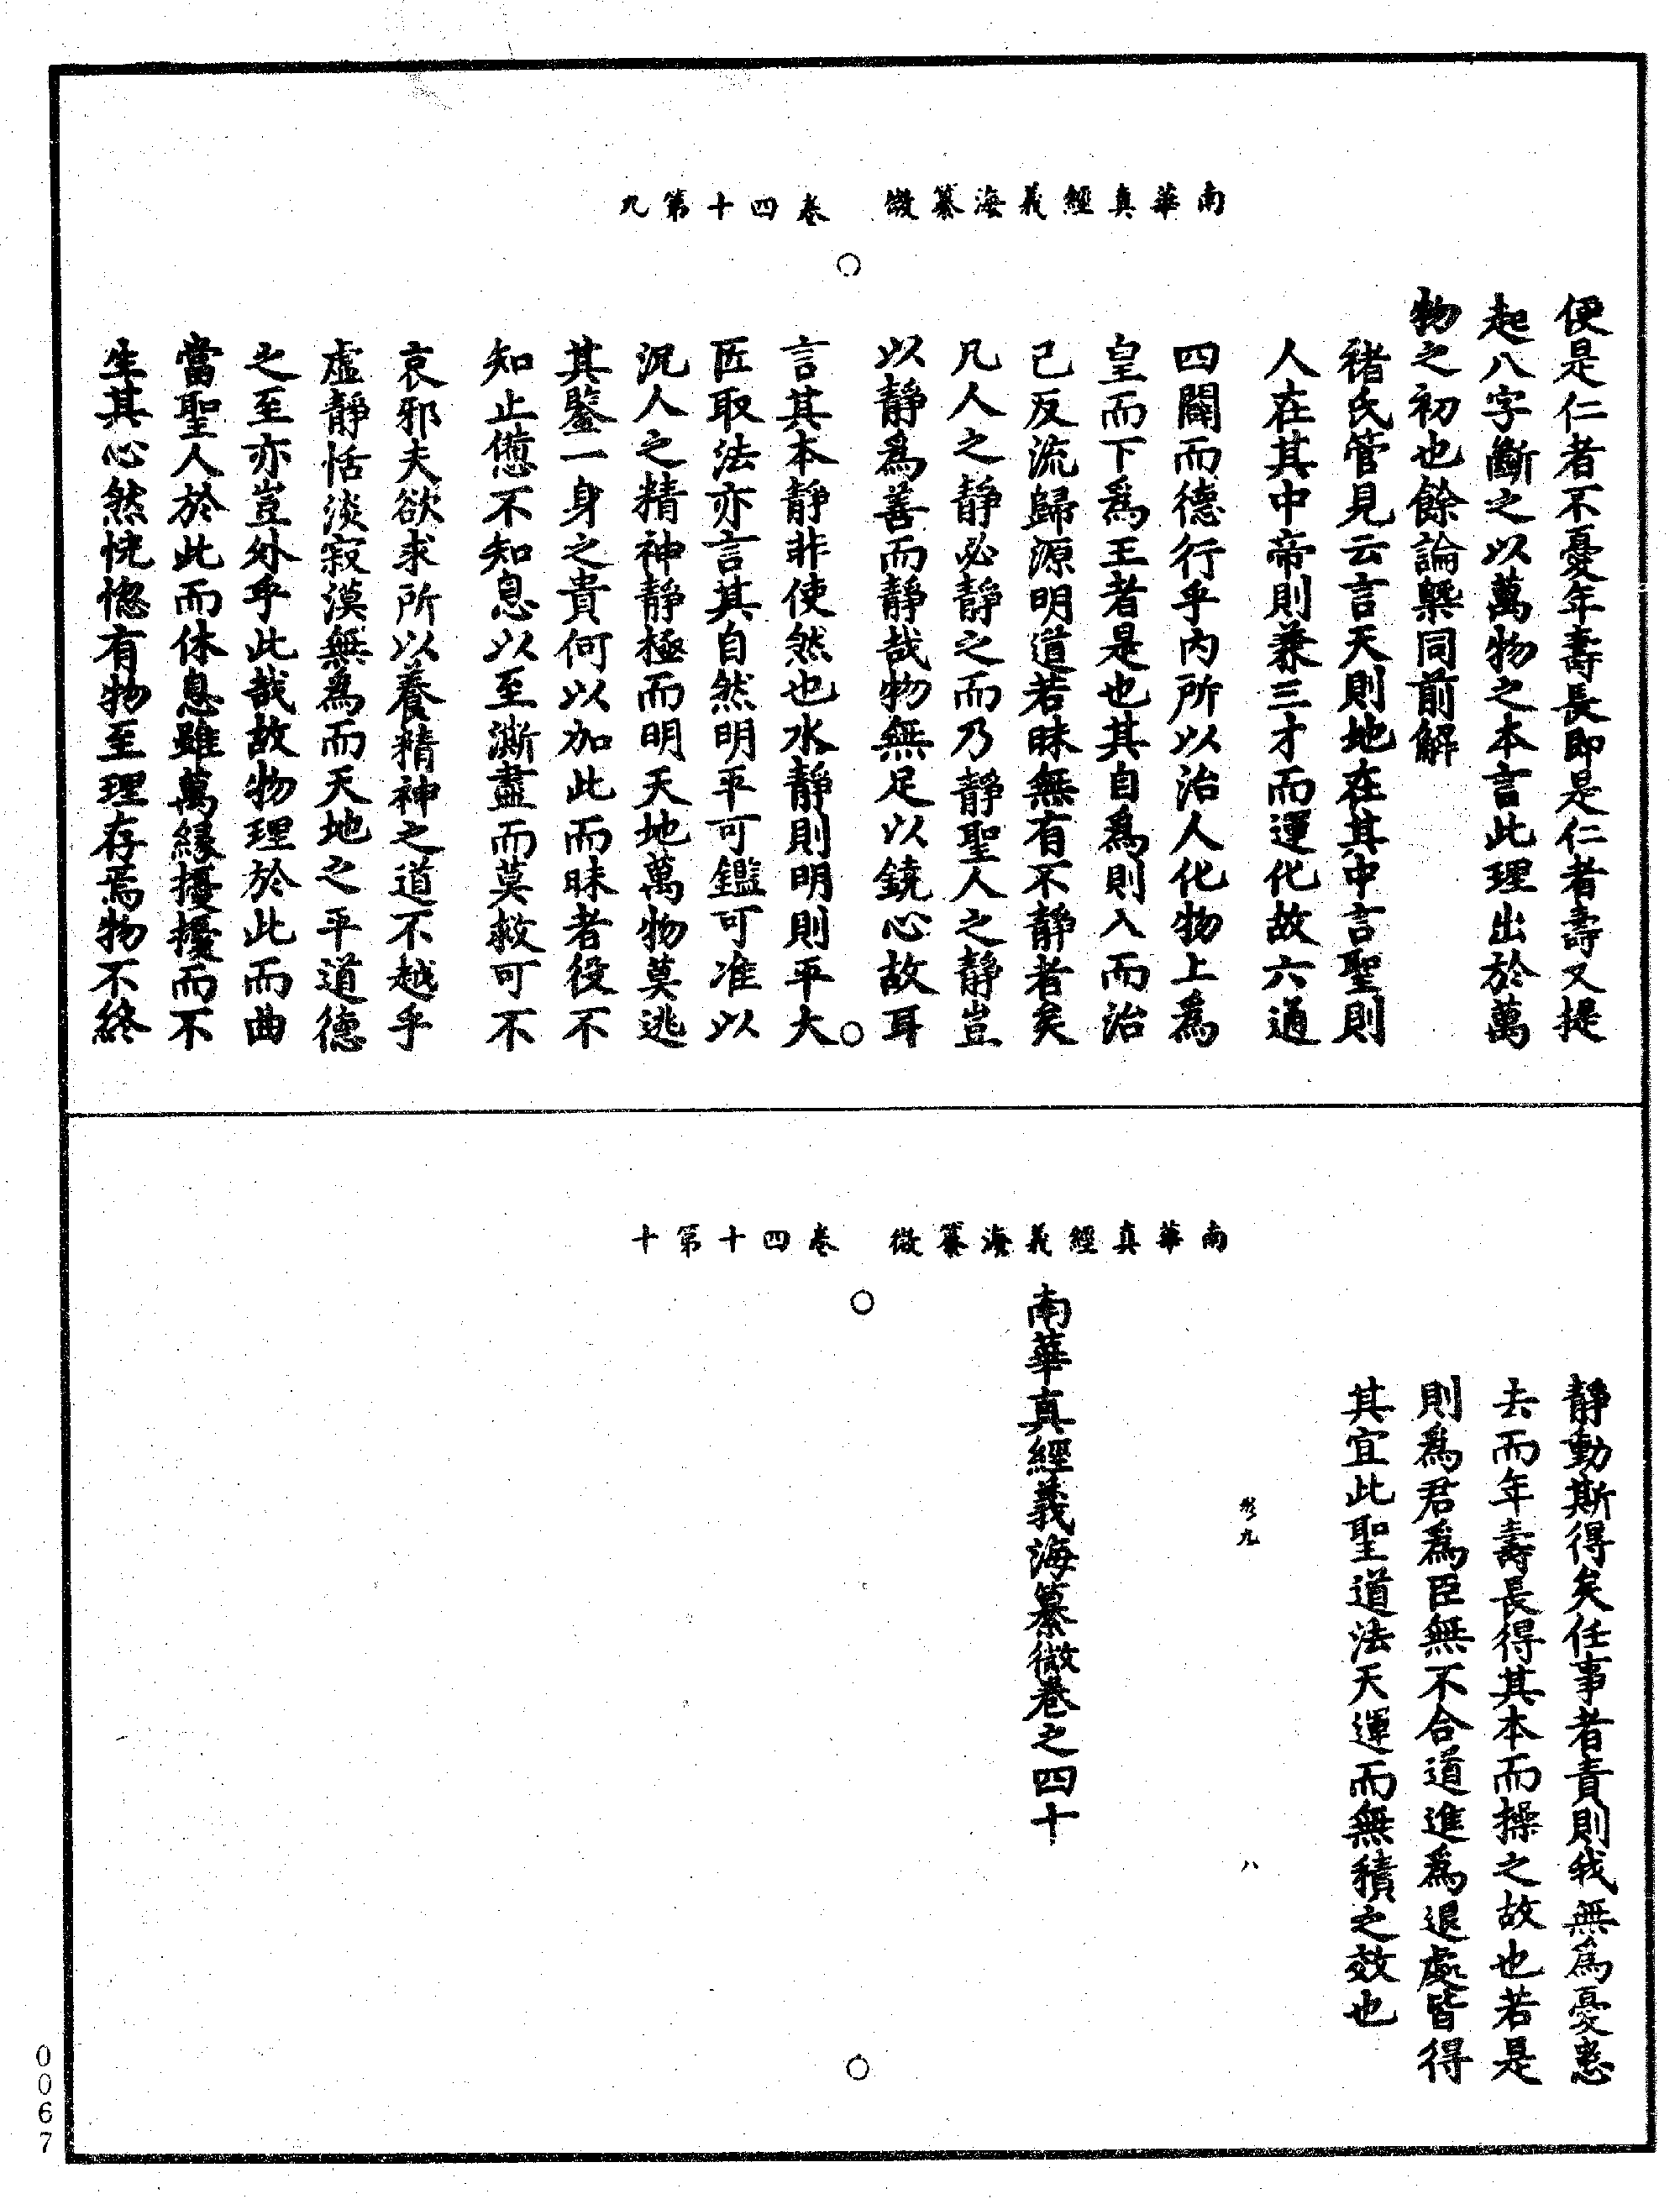 南華真經義海纂微　卷四十第九
便是仁者不憂年壽長即是仁者壽又提
起八字斷之以萬物之本言此理出於萬
物之初也餘論槩同前解
褚氏管見云言天則地在其中言聖則
人在其中帝則兼三才而運化故六通
四闢而德行乎內所以治人化物上爲
皇而下爲王者是也其自爲則入而治
己反流歸源明道若昧無有不靜者矣
凡人之靜必靜之而乃靜聖人之靜豈
以靜爲善而靜哉物無足以鐃心故耳
言其本靜非使然也水靜則明則平大
匠取法亦言其自然明平可鑑可准以
況人之精神靜極而明天地萬物莫逃
其鑒一身之貴何以加此而昧者役不
知止憊不知息以至澌盡而莫救可不
哀邪夫欲求所以養精神之道不越乎
虛靜恬淡寂漠無爲而天地之平道德
之至亦豈外乎此哉故物理於此而曲
當聖人於此而休息雖萬緣擾擾而不
生其心然恍惚有物至理存焉物不終
南華真經義海纂微　卷四十第十
靜動斯得矣任事者責則我無爲憂患
去而年壽長得其本而操之故也若是
則爲君爲臣無不合道進爲退處皆得
其宜此聖道法天運而無積之效也
九
八
南華真經義海纂微卷之四十
0067